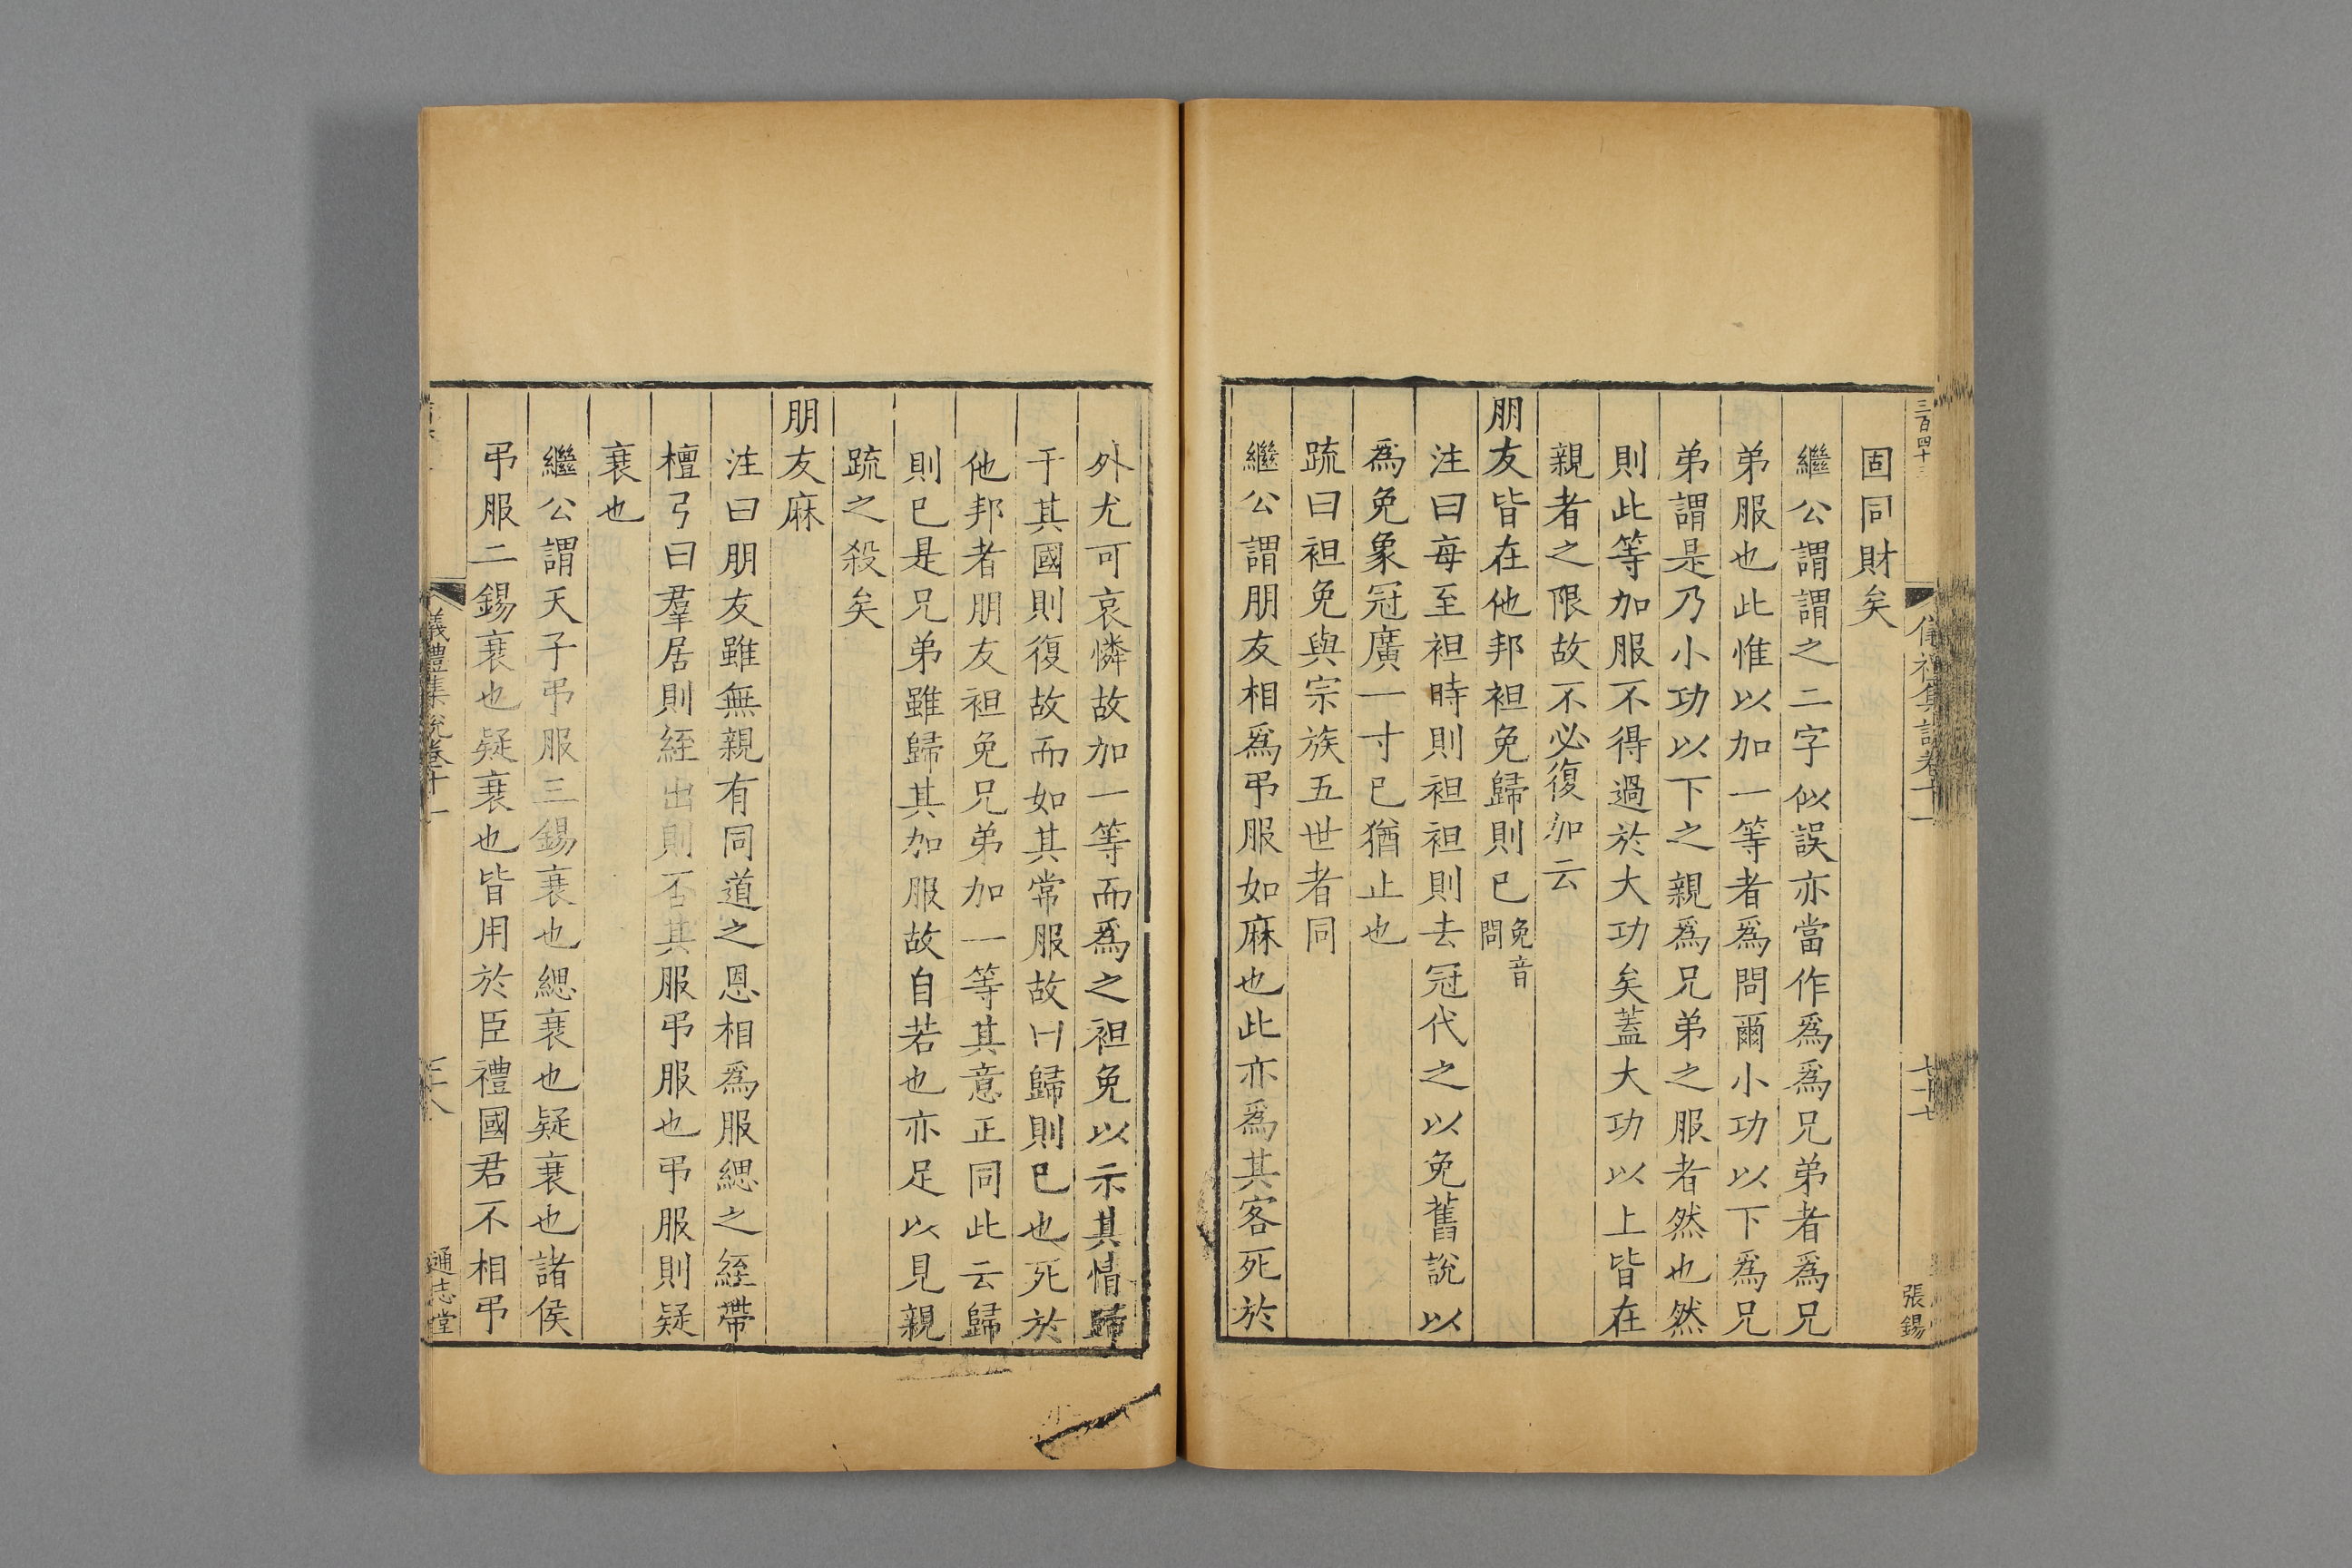 三百四十三
儀禮集說卷十一
七十七
張錫
固同財矣
繼公謂謂之二字似誤亦當作爲爲兄弟者爲兄
弟服也此惟以加一等者爲問爾小功以下爲兄
弟謂是乃小功以下之親爲兄弟之服者然也然
則此等加服不得過於大功矣蓋大功以上皆在
親者之限故不必復加云
朋友皆在他邦袒免歸則已免音問
注曰每至袒時則袒袒則去冠代之以免舊說以
爲免象冠廣一寸已猶止也
疏曰袒免與宗族五世者同
繼公謂朋友相爲弔服如麻也此亦爲其客死於
外尤可哀憐故加一等而爲之袒免以示其情歸
于其國則復故而如其常服故曰歸則已也死於
他邦者朋友袒免兄弟加一等其意正同此云歸
則已是兄弟雖歸其加服故自若也亦足以見親
疏之殺矣
朋友麻
注曰朋友雖無親有同道之恩相爲服緦之絰帶
檀弓曰羣居則絰出則否其服弔服也弔服則疑
衰也
繼公謂天子弔服三錫衰也緦衰也疑衰也諸侯
弔服二錫衰也疑衰也皆用於臣禮國君不相弔
儀禮集說卷十一
通志堂